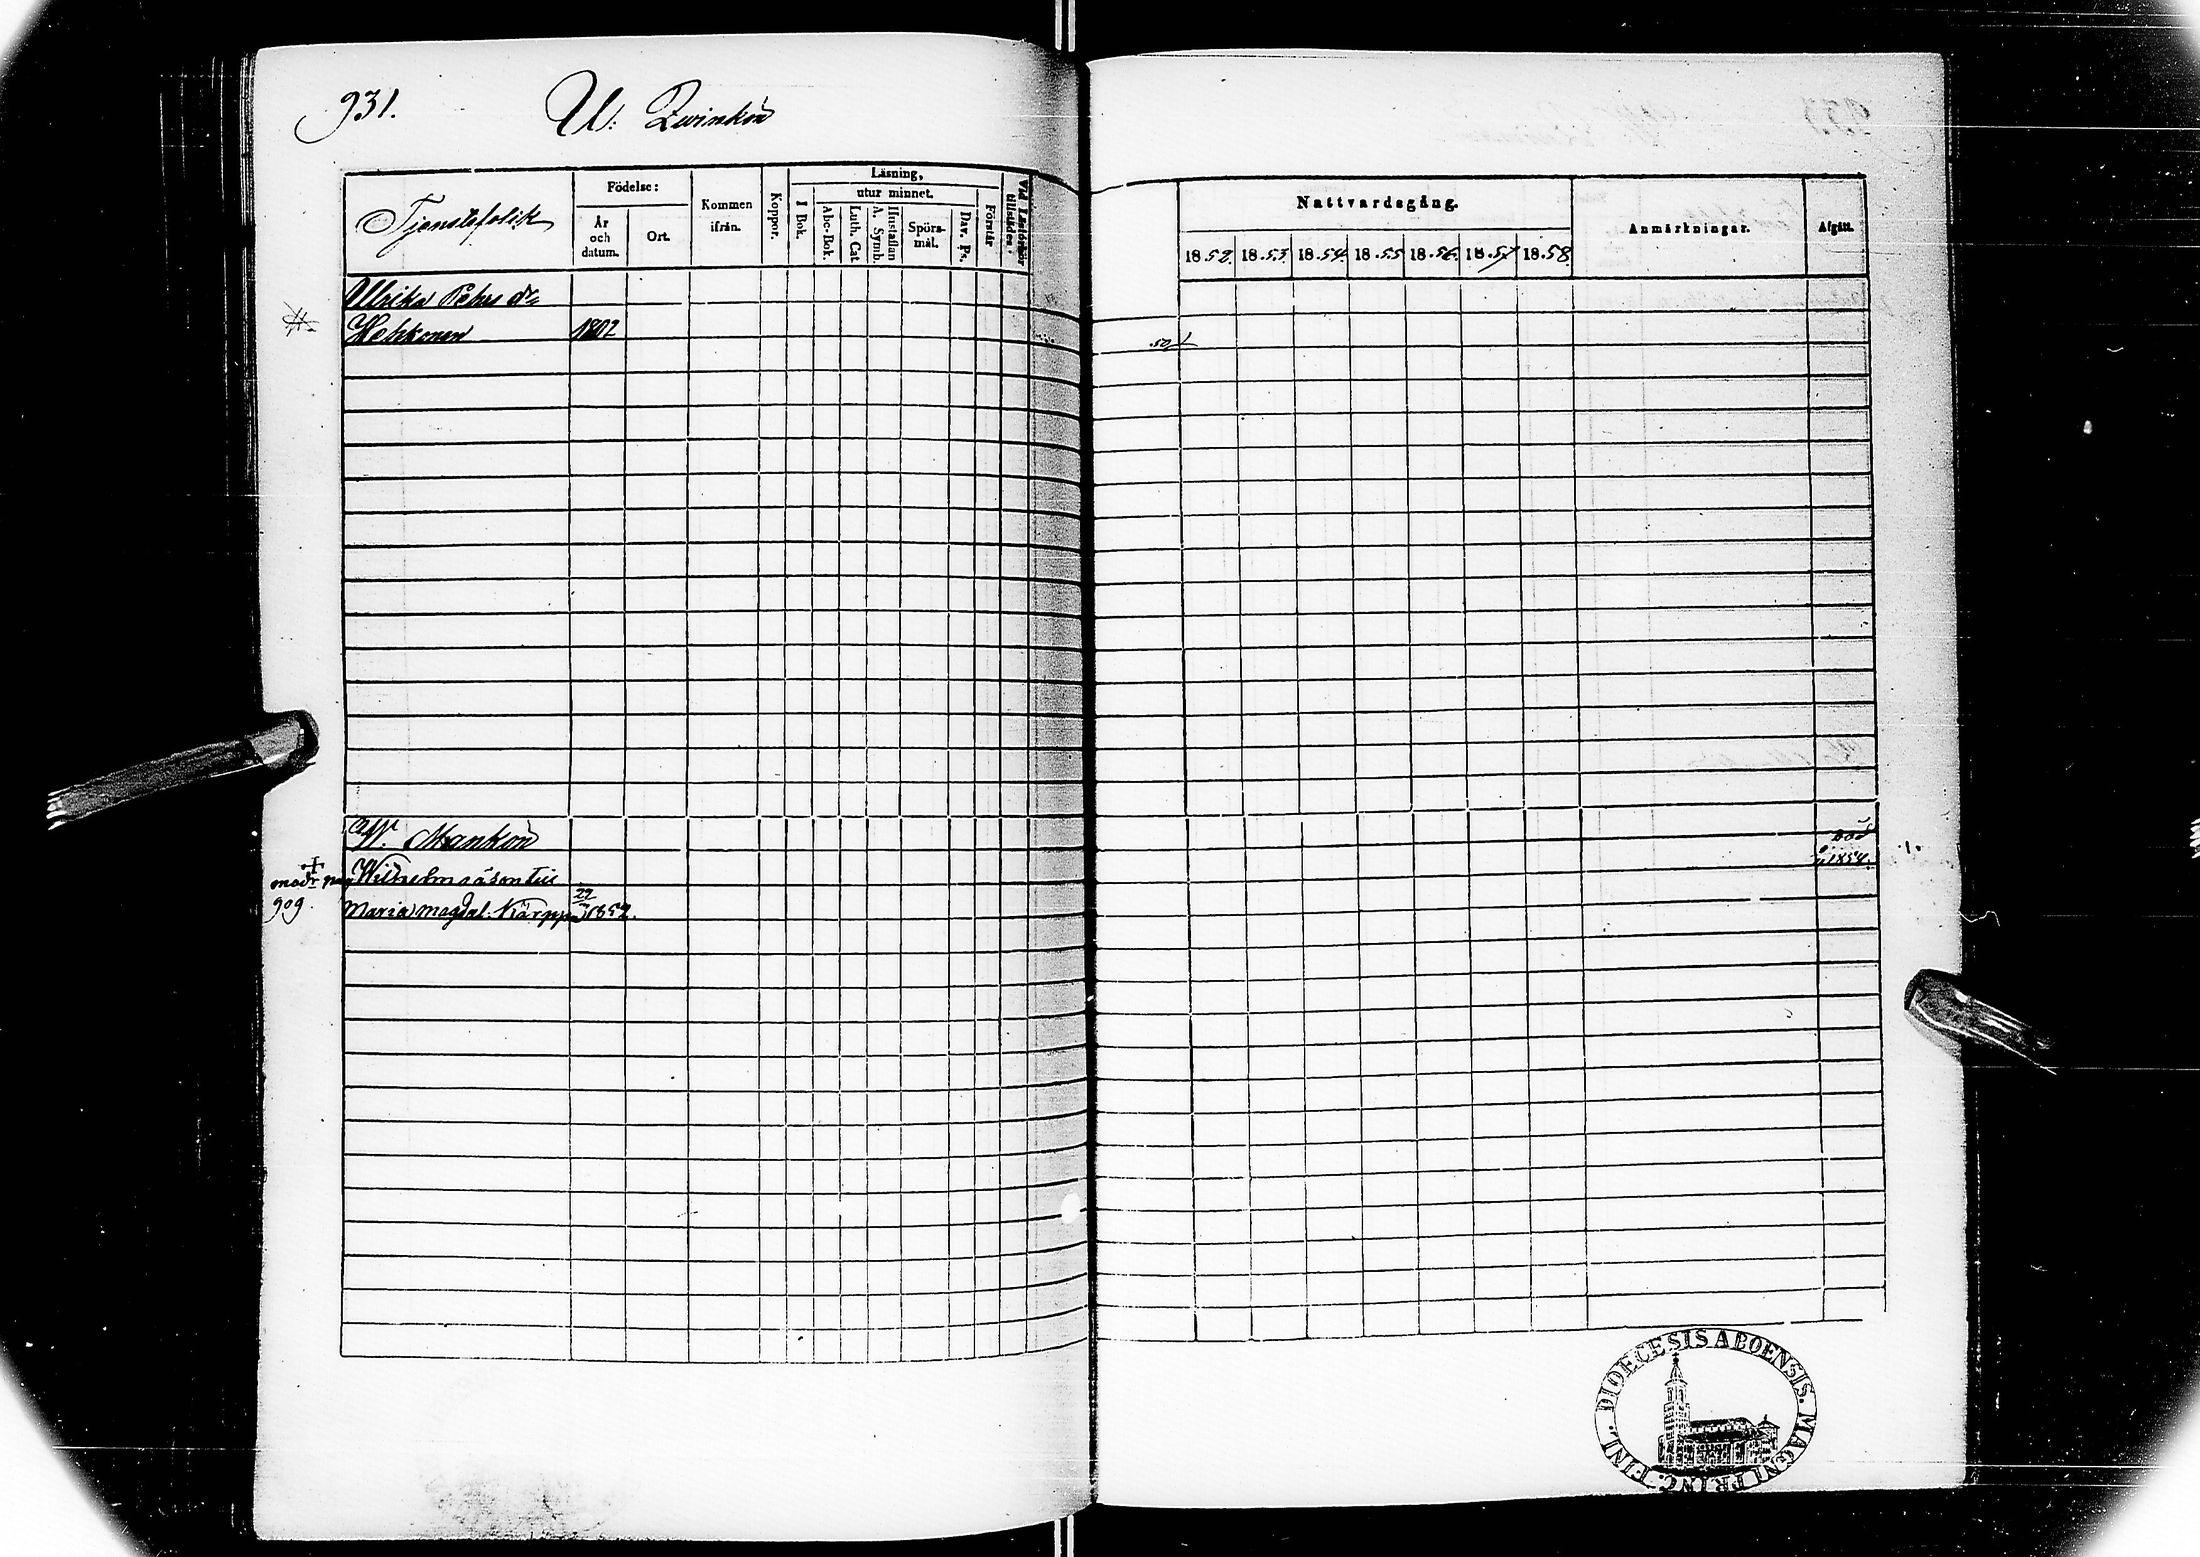 931.
Tjenstefolik
Födelse:
År och datum.
Ort.
Kommen ifrån.
Koppor.
Läsning,
utur minnet.
I Bok.
Abc-Bok.
Luth. Cat
A. Symb.
Hustaflan
Spörsmål.
Dav. Ps.
Förstår
Vid Läsförhör tillstädes:
Nattvardsgång.
1852. 1853. 1854. 1855 1856. 1857 1858.
Anmärkningar.
Afgått.
Ulrika Petus dr
Hekkonen 1802
W. Mankon
död
1854.
Wilhelmina
909.
Maria Magdal. Kärppä 22 1852.
DIOECESIS ABOENSIS. MAGNI PRINC. FINL.